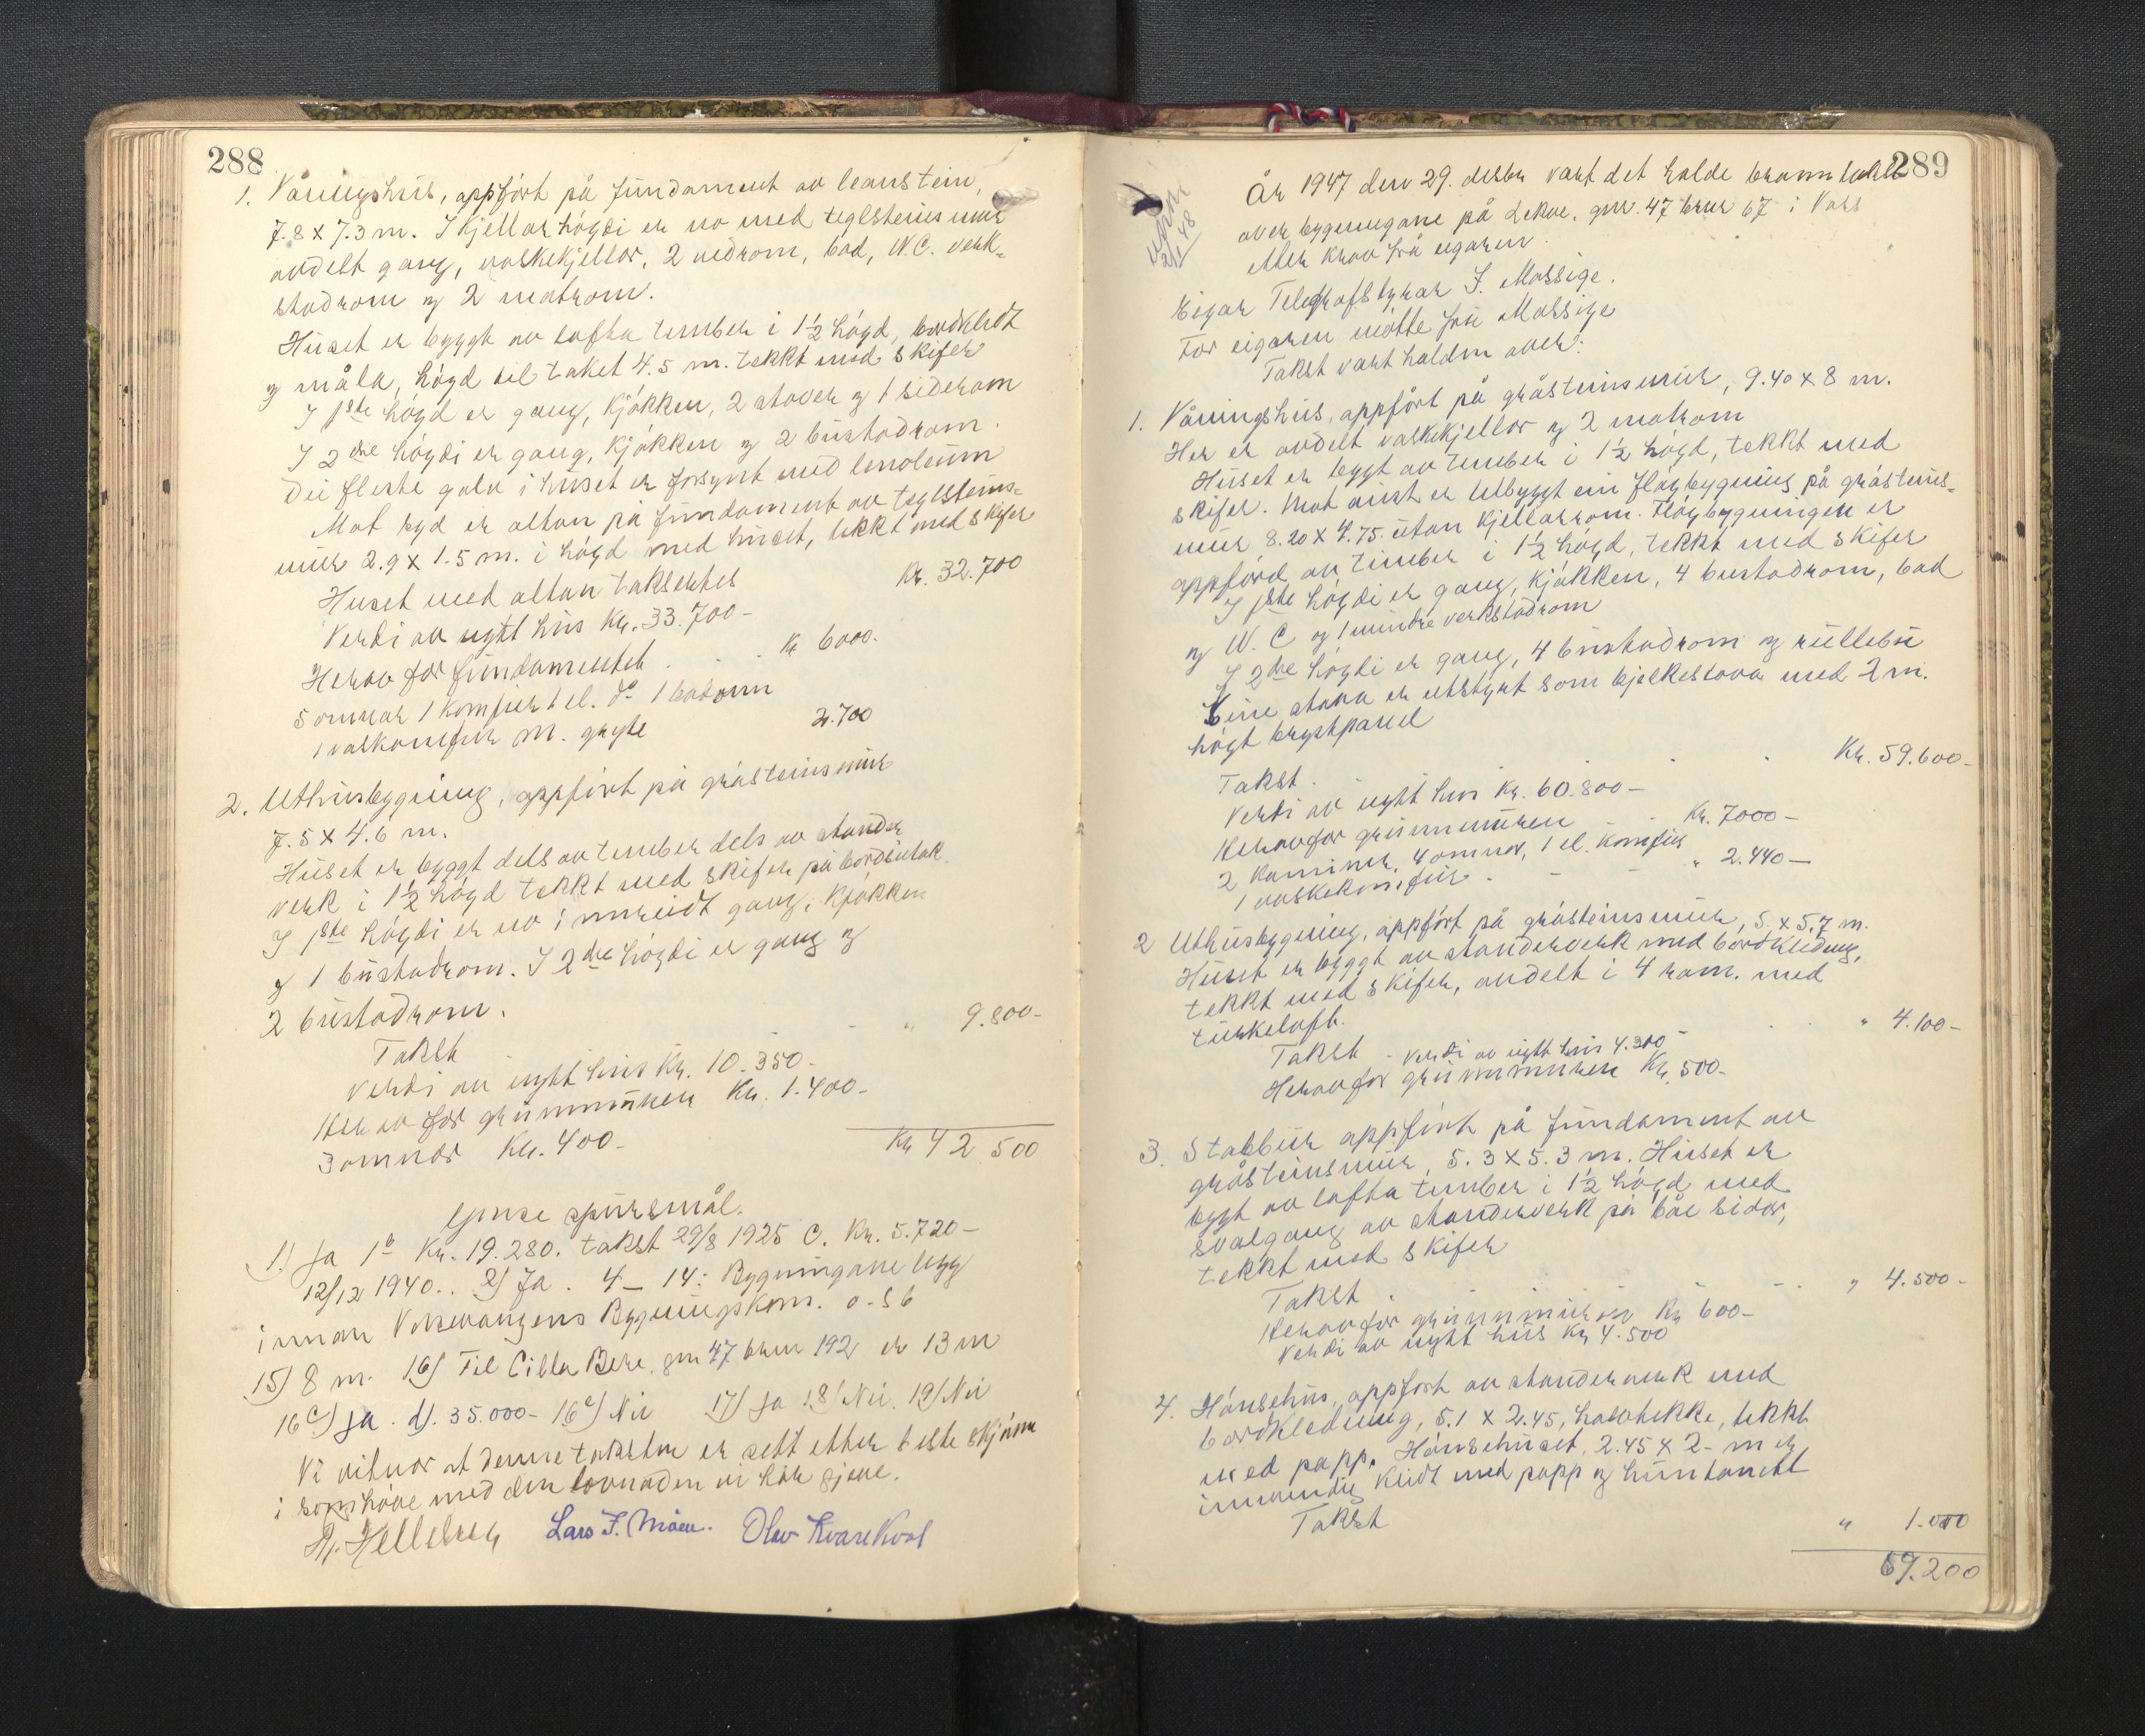 288
1. Våningshus, oppført på fundament av leanstein,
7.8 x 7.3 m. I kjellarhøgdi er no med teglsteinsmur
avdelt gang, vaskekjellar, 2 vedrom, bad, W.C. verk-
stadrom og 2 matrom.
Huset er byggt av lafta tember i 1½ høgd, bordkledt
og måla, høgd til taket 4.5 m. tekkt med skifer
I 1ste høgd er gang, kjøkken, 2 stover og 1 siderom
I 2dre høgdi er gang, kjøkken og 2 bustadrom.
Dei fleste golv i huset er forsynt med linoleum
Mot syd er altan på fundament av teglsteins-
mur 2.9 x 1.5 m. i høgd med huset, tekkt med skifer
Huset med altan taksertes Kr. 32.700
Verdi av nytt hus Kr. 33.700-
Herav for fundamentet . . . Kr 6000.
5 omnar 1 komfur 1 el. do 1 badomn
1 vaskomfur m. gryte 2.700
2. Uthusbygning, oppført på gråsteinsmur
7.5 x 4.6 m.
Huset er byggt dels av tember dels av stender
verk i 1½ høgd tekkt med skifer på bordsutak
I 1ste høgdi er no innreidt gang, kjøkken
og 1 bustadrom. I 2dre høgdi er gang og
2 bustadrom.
Takst - " 9.800-
Verdi av nytt hus Kr. 10.350-
Herav for grunnmuren Kr. 1.400-
3 omnar Kr. 400-
Kr 42 500
Ymse spursmål.
1) Ja 1b Kr. 19.280. takst 29/8 1925 c. Kr. 5.720-
12/12 1940.. 2) Ja. 4 - 14: Bygningane ligg
innan Vossevangens Bygningskom. o-s b
15) 8 m. 16) Til Cilla Berre. gnr 47 brnr 192 er 13 m
16c) Ja. d). 35.000- 16e) Nei 17) Ja 18) Nei. 19) Nei
Vi vitnar at denne taksten er sett etter beste skjønn
i samhøve med den lovnaden vi har gjeve.
Lars F. Møen. Olav Kvarekval
289
År 1947 den 29. desbr vart det halde branntakst
over bygningane på Lekve, gnr. 47 brnr 67 i Voss
etter krav frå eigaren.
Eigar Telegrafstyrar I. Massige.
For eigaren møtte fru Massige
Takst vart halden over:
1. Våningshus, oppført på gråsteinsmur, 9.40 x 8 m.
Her er avdelt vaskekjellar og 2 matrom
Huset er bygt av tember i 1½ høgd, tekkt med
skifer. Mot aust er utbyggt ein fløybygning på gråsteins-
mur 8.20 x 4.75. utan kjellarrom. Fløybygningen er
oppførd av timber i 1½ høgd, tekkt med skifer
I 1ste høgdi er gang, kjøkken, 4 bustadrom, bad
og W. C og 1 mindre verkstadrom
I 2dre høgdi er gang, 4 bustadrom og rullebu
Eine stova er utstyrt som bjelkestova med 2 m.
høgt brystpanel
Takst . . . Kr. 59.600-
Verdi av nytt hus Kr. 60.800-
Herav for grunnmuren - - Kr. 7000-
2 kaminer, 4 omnar, 1 el. komfur
1 vaskekomfur - - - " 2.440-
2 Uthusbygning, oppført på gråsteinsmur, 5 x 5.7 m.
Huset er byggt av standerverk med bordkledning,
tekkt med skifer, avdelt i 4 rom. med
turkeloft.
Takst - Verdi av nytt hus 4.300- " 4.100-
Herav for grunnmuren Kr. 500-
3. Stabbur oppført på fundament av
gråsteinsmur, 5.3 x 5.3 m. Huset er
bygt av lafta tember i 1½ høgd med
svalgang av standerverk på båe sidor,
tekkt med skifer
Takst . . . " 4.500-
Herav for grunnmuren Kr 600-
Verdi av nytt hus Kr 4.500
4. Hønsehus, oppført av standerverk med
bordkledning, 5.1 x 2.45, halvtekke, tekkt
med papp. Hønsehuset, 2.45 x 2- m er
innvendig kledt med papp og huntonitt
Takst " 1.000
69.200